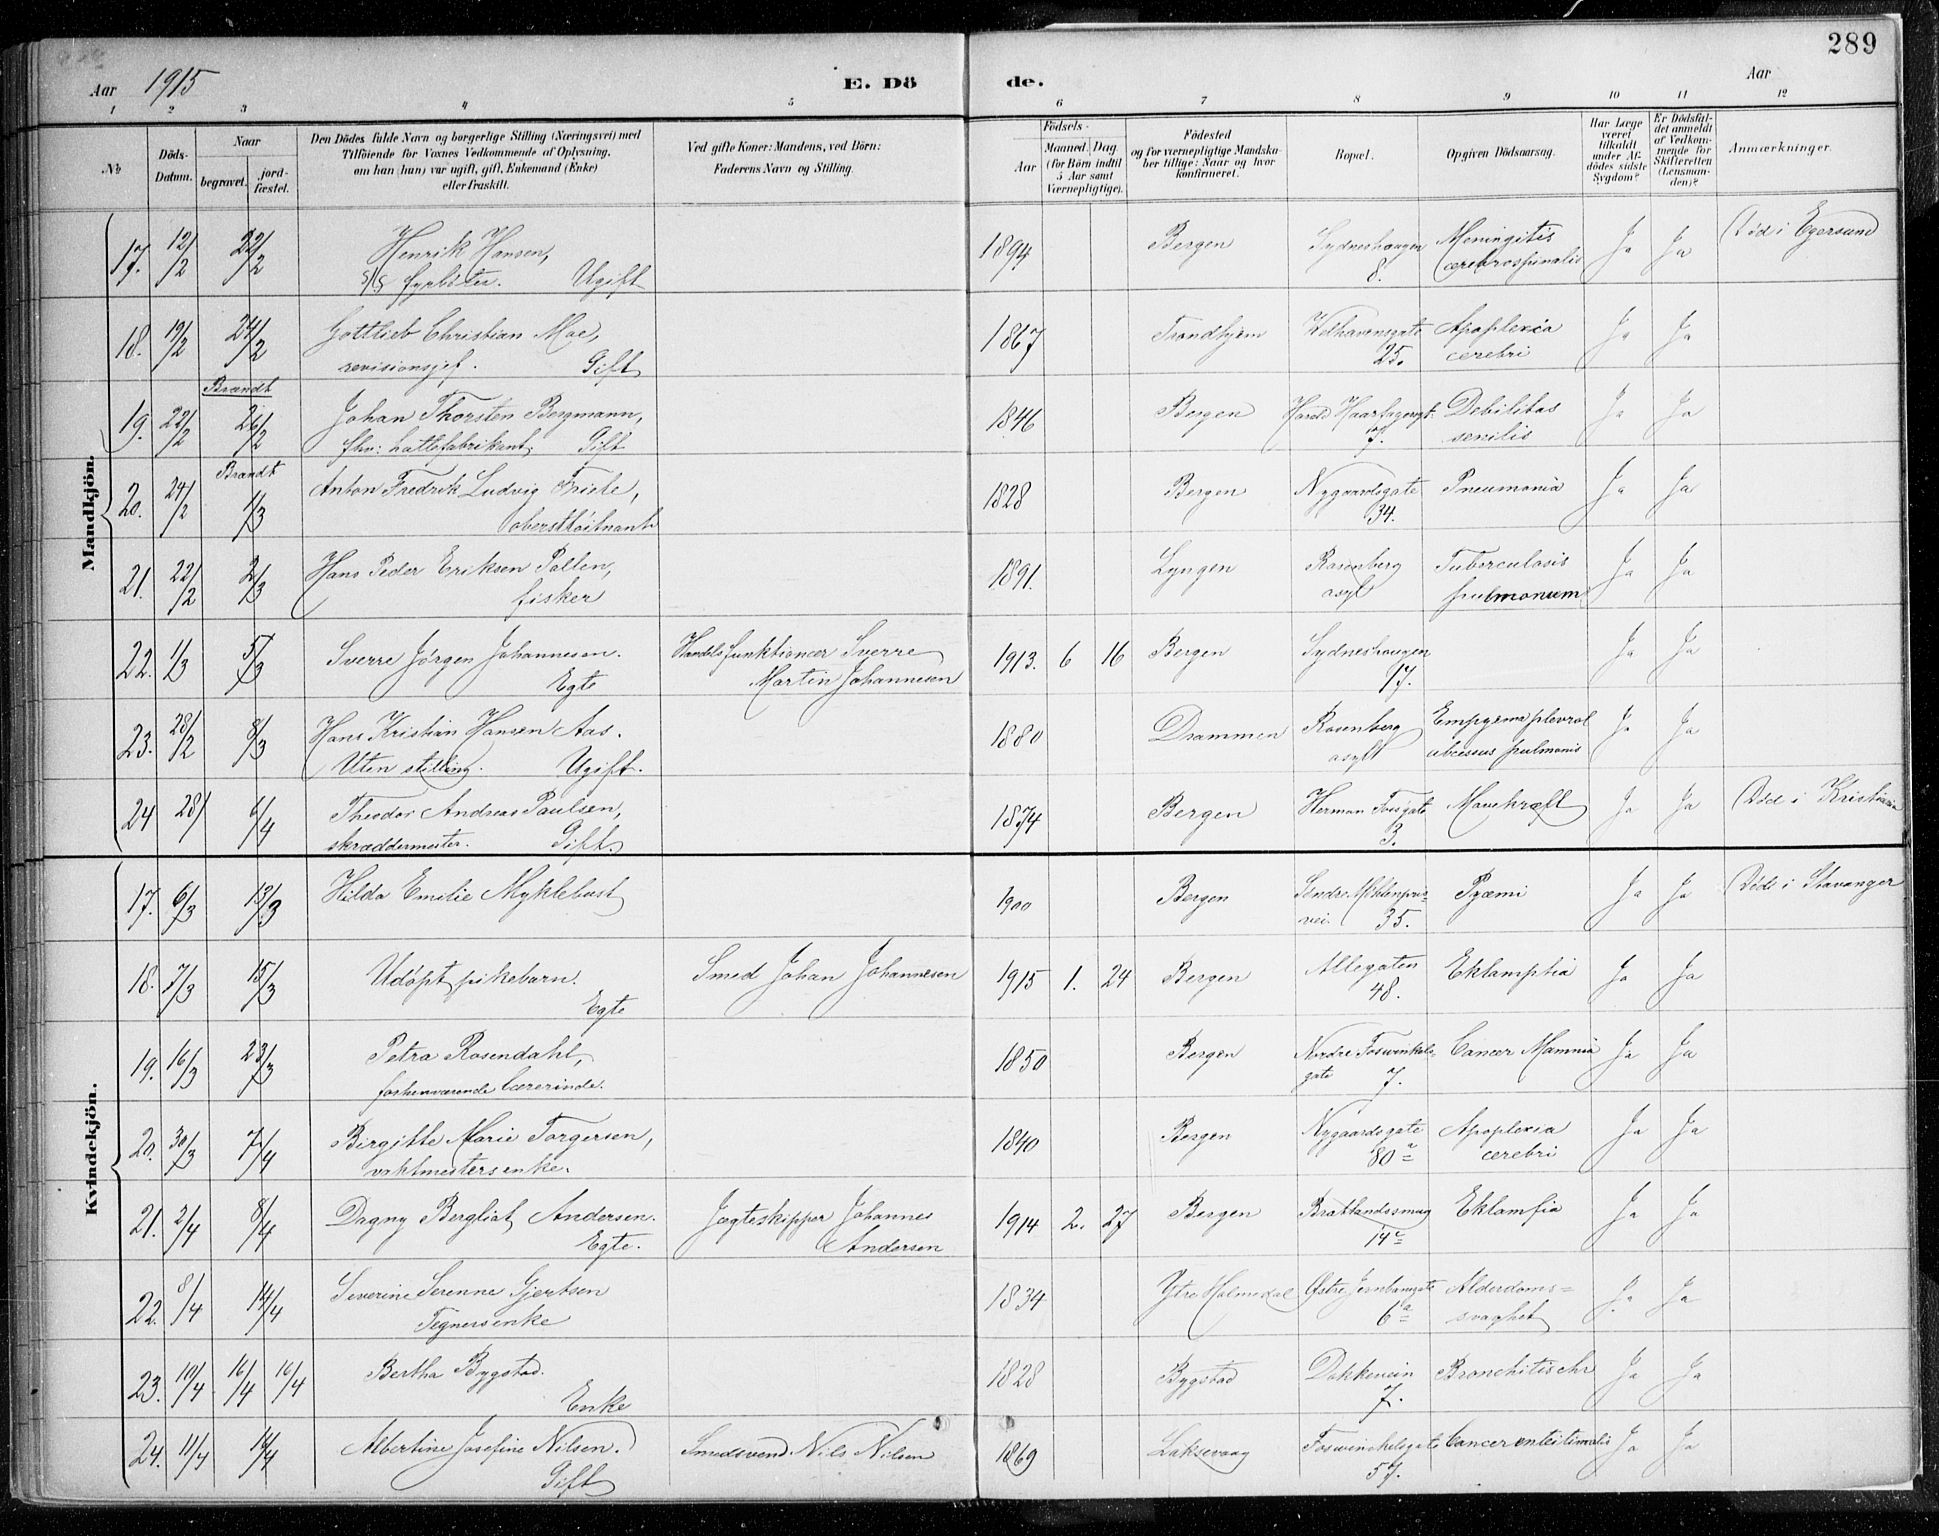 289
Aar 1915 E. Dö de. Aar
1 2 3 4 5 6 7 8 9 10 11 12
No
Döds-Datum.
Naar begravet. jord-fæstet.
Den Dödes fulde Navn og borgerlige Stilling (Næringsvei) med Tilföiende for Voxnes Vedkommende af Oplysning, om han (hun) var ugift, gift, Enkemand (Enke) eller fraskilt.
Ved gifte Koner: Mandens, ved Börn: Faderens Navn og Stilling.
Födsels- Aar Maaned. Dag. (for Börn indtil 5 Aar samt Værnepligtige).
Födested og for værnepligtige Mandskaber tillige: Naar og hvor konfirmeret.
Bopæl.
Opgiven Dödsaarsag.
Har Læge været tilkaldt under Afdödes sidste Sygdom?
Er Dödsfaldet anmeldt af Vedkommende for Skifteretten (Lensmanden)?
Anmærkninger.
Mandkjön.
17. 12/2 22/2 Henrik Hansen, s/s fyrböter. Ugift 1894 Bergen Sydneshaugen 8. Meningitis cerebrospinalis Ja Ja Död i Egersund
18. 19/2 24/2 Gottlieb Christian Moe, revisionsjef. Gift 1867 Trondhjem Welhavensgate 25. Apoplexia cerebri Ja Ja
19. 22/2 Brændt 26/2 Johan Thorsten Bergmann, fhv: hattefabrikant, Gift 1846 Bergen Harald Haarfagersgt. 7. Debilitas senilis Ja Ja
20. 24/2 Brændt 1/3 Anton Fredrik Ludvig Friele, oberstlöitnant 1828 Bergen Nygaardsgate 34. Pneumonia Ja Ja
21. 22/2 2/3 Hans Peder Eriksen Pollen, fisker 1891. Lyngen Rosenberg asyl Tuberculosis pulmonum Ja Ja
22. 1/3 5/3 Sverre Jörgen Johannesen. Egte Handelsfunktionær Sverre Martin Johannesen 1913. 6 16 Bergen Sydneshaugen 17. Ja Ja
23. 28/2 8/3 Hans Kristian Hansen Aas. Uten stilling. Ugift. 1880 Drammen Rosenberg asyl Empyema plevral abcessus pulmonis Ja Ja
24 28/ 6/4 Theodor Andreas Paulsen, skræddermester. Gift. 1874 Bergen Herman Fossgate 3. Mavekræft Ja Ja Död i Kristiania
Kvindekjön.
17. 6/3 13/3 Hilda Emilie Myklebust 1900 Bergen Söndre vei. 35. Pyæmi Ja Ja Död i Stavanger
18. 7/3 15/3 Udöpt pikebarn. Egte Smed Johan Johannesen 1915 1. 24 Bergen Allegaten 48. Eklamptia Ja Ja
19. 16/3 23/3 Petra Rosendahl, forhenværende Lærerinde. 1850 Bergen Nordre Foswinkels gate 7. Cancer Mamma Ja Ja
20. 30/3 7/4 Birgitte Marie Torgersen, vaktmestersenke. 1840 Bergen Nygaardsgate 80a Apoplexia cerebri Ja Ja
21. 2/4 8/4 Dagny Bergliot Andersen. Egte. Jægteskipper Johannes Andersen 1914 2. 27 Bergen Bratlandssmug 14c Eklamfia Ja Ja
22. 8/4 14/4 Severine Serenne Gjertsen Tegnersenke 1834 Ytre Holmedal Østre Jernbanegate 6a Alderdomssvaghet Ja Ja
23. 10/4 16/4 16/4 Bertha Bygstad. Enke 1828 Bygstad Dokkevein 7. Bronchitis chr Ja Ja
24. 11/4 14/4 Albertine Josefine Nilsen. Gift Smedsvend. Nils Nilsen 1869 Laksevaag Foswinckelsgate 57. Cancer intestinalis Ja Ja